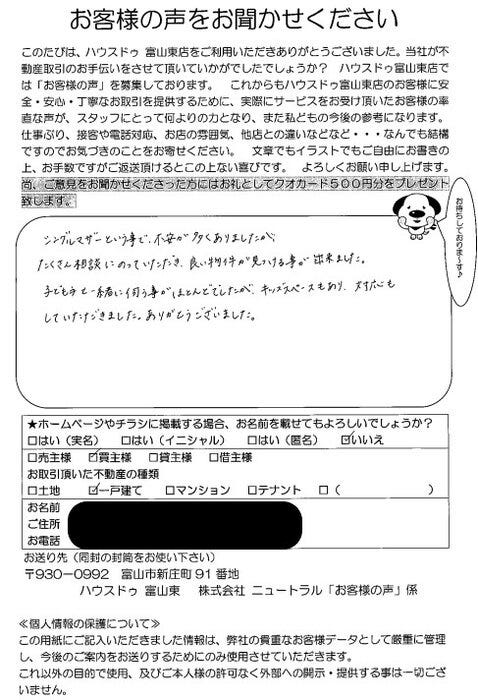 お客様の声をお聞かせください
このたびは、ハウスドゥ 富山東店をご利用いただきありがとうございました。当社が不
動産取引のお手伝いをさせて頂いていかがでしたでしょうか？　ハウスドゥ富山東店で
は「お客様の声」を募集しております。　これからもハウスドゥ富山東店のお客様に安
全・安心・丁寧なお取引を提供するために、実際にサービスをお受け頂いたお客様の率
直な声が、スタッフにとって何よりの力となり、また私どもの今後の参考になります。
仕事ぶり、接客や電話対応、お店の雰囲気、他店との違いなどなど・・・なんでも結構
ですのでお気づきのことをお寄せください。　文章でもイラストでもご自由にお書きの
上、お手数ですがご返送頂けるとこの上ない喜びです。　よろしくお願い申し上げます。
尚、ご意見をお聞かせくださった方にはお礼としてクオカード５００円分をプレゼント
致します。
お待ちしておりま～す♪
シングルマザーという事で、不安が多くありましたが、
たくさん相談にのっていただき、良い物件が見つける事が出来ました。
子どもも一緒に伺う事がほとんどでしたが、キッズスペースもあり、対応も
していただきました。ありがとうございました。
★ホームページやチラシに掲載する場合、お名前を載せてもよろしいでしょうか？
□はい（実名）　□はい（イニシャル）　□はい（匿名）　☑いいえ
□売主様　☑買主様　□貸主様　□借主様
お取引頂いた不動産の種類
□土地　☑一戸建て　□マンション　□テナント　□（　　　　　　）
お名前
ご住所
お電話
お送り先（同封の封筒をお使い下さい）
〒930-0992　富山市新庄町91番地
ハウスドゥ 富山東　株式会社 ニュートラル「お客様の声」係
≪個人情報の保護について≫
この用紙にご記入いただきました情報は、弊社の貴重なお客様データとして厳重に管理
し、今後のご案内をお送りするためにのみ使用させていただきます。
これ以外の目的で使用、及びご本人様の許可なく外部への開示・提供する事は一切ござ
いません。